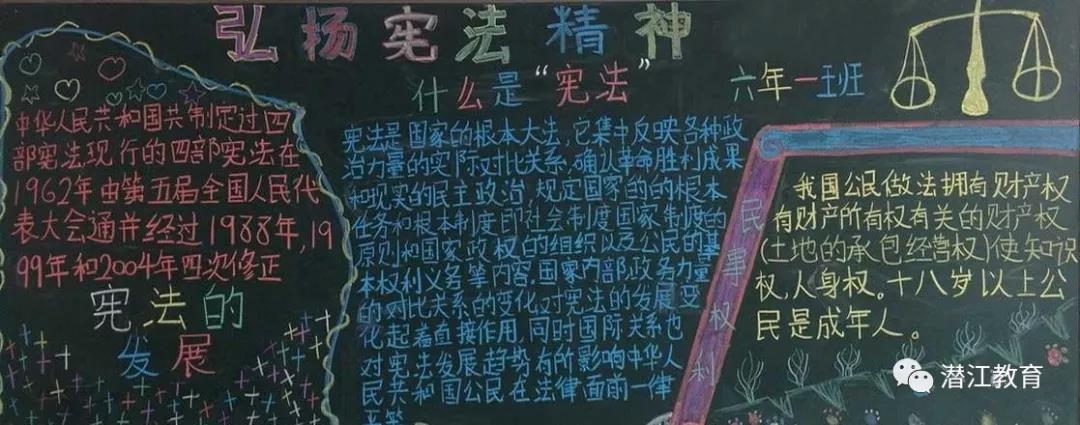 弘扬宪法精神
什么是“宪法”
六年一班
中华人民共和国共制定过四
部宪法现行的四部宪法在
1962年由第五届全国人民代
表大会通并经过1988年,19
99年和2004年四次修正
宪法的
发展
宪法是国家的根本大法,它集中反映各种政
治力量的实际对比关系,确认革命胜利成果
和现实的民主政治,规定国家的的根本
任务和根本制度即社会制度国家制度的
原则和国家政权的组织以及公民的基
本权利义务等内容。国家内部政务力量
的对比关系的变化对宪法的发展变
化起着直接作用,同时国际关系也
对宪法发展趋势有所影响中华人
民共和国公民在法律面前一律
民事权利
我国公民做法拥有财产权
有财产所有权有关的财产权
(土地的承包经营权)使知识
权,人身权。十八岁以上公
民是成年人。
潜江教育